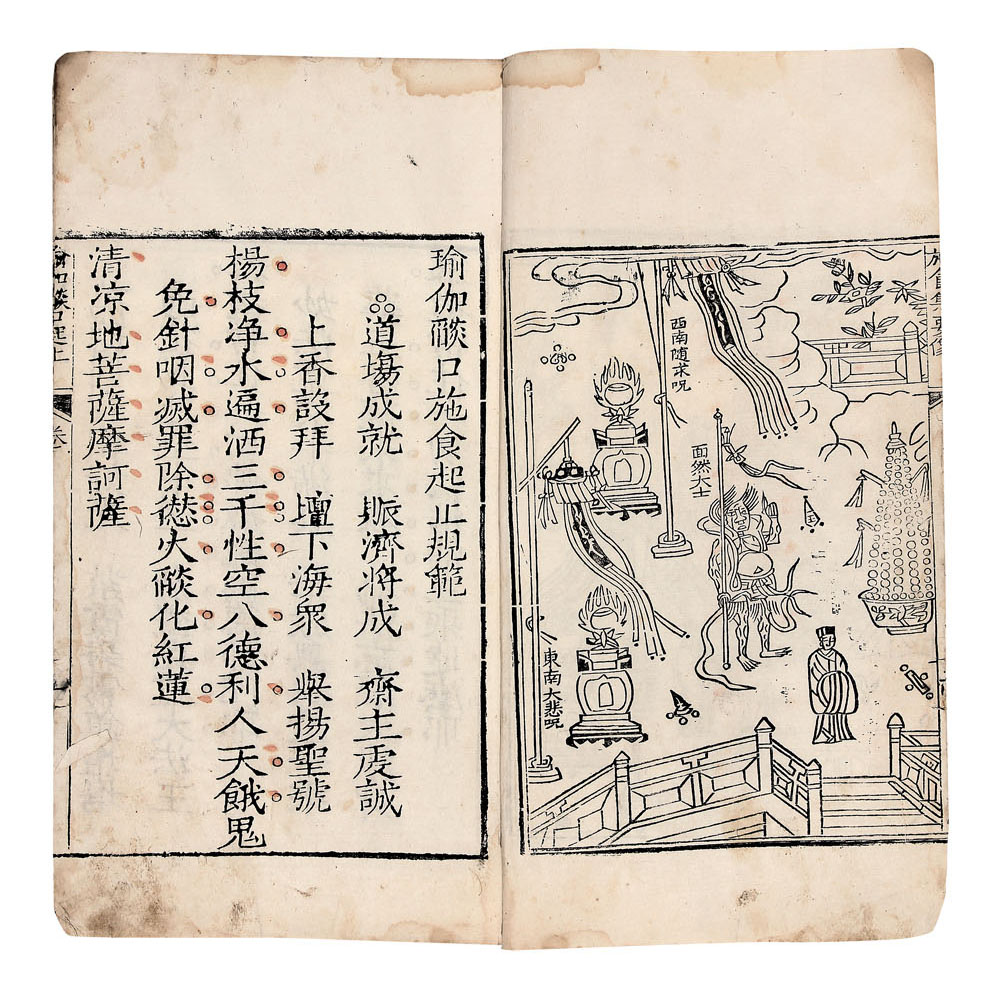 西南随求呪
面然大士
東南大悲呪
瑜伽燄口施食起止規範
道塲成就 賑濟將成 齋主虔誠
上香設拜 壇下海衆 舉揚聖號
楊枝净水遍洒三千性空八德利人天餓鬼
免針咽滅罪除愆火燄化紅蓮
清凉地菩薩摩訶薩